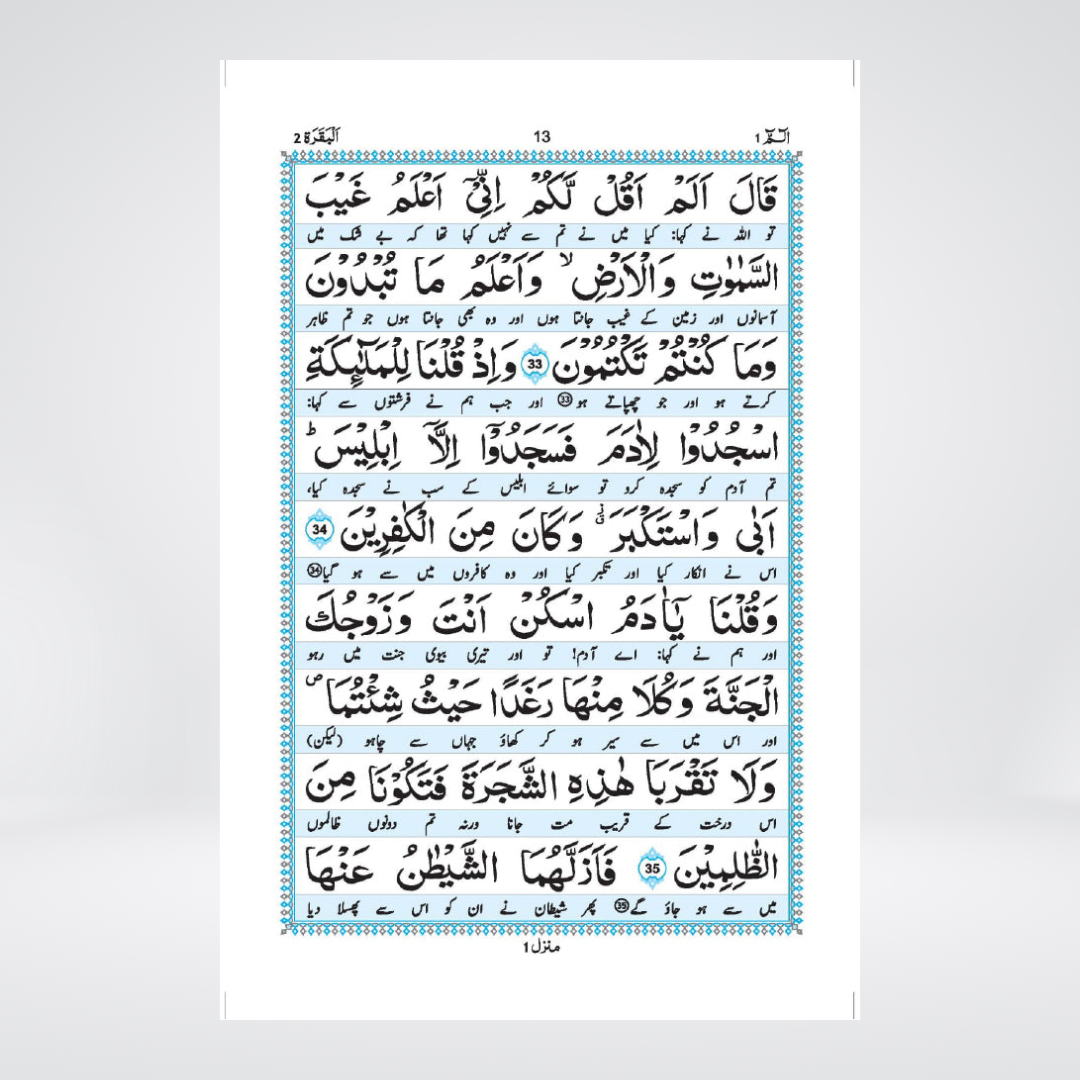 الٓمّٓ 1 13 اَلْبَقَرَة 2
قَالَ اَلَمْ اَقُلْ لَّكُمْ اِنِّيْٓ اَعْلَمُ غَيْبَ
تو اللہ نے کہا: کیا میں نے تم سے نہیں کہا تھا کہ بے شک میں
السَّمٰوٰتِ وَالْاَرْضِ ۙ وَاَعْلَمُ مَا تُبْدُوْنَ
آسمانوں اور زمین کے غیب جانتا ہوں اور وہ بھی جانتا ہوں جو تم ظاہر
وَمَا كُنْتُمْ تَكْتُمُوْنَ 33 وَاِذْ قُلْنَا لِلْمَلٰٓئِكَةِ
کرتے ہو اور جو چھپاتے ہو ㉝ اور جب ہم نے فرشتوں سے کہا:
اسْجُدُوْا لِاٰدَمَ فَسَجَدُوْٓا اِلَّآ اِبْلِيْسَ ؕ
تم آدم کو سجدہ کرو تو سوائے ابلیس کے سب نے سجدہ کیا،
اَبٰى وَاسْتَكْبَرَ ۗ وَكَانَ مِنَ الْكٰفِرِيْنَ 34
اس نے انکار کیا اور تکبر کیا اور وہ کافروں میں سے ہو گیا ㉞
وَقُلْنَا يٰٓاٰدَمُ اسْكُنْ اَنْتَ وَزَوْجُكَ
اور ہم نے کہا: اے آدم! تو اور تیری بیوی جنت میں رہو
الْجَنَّةَ وَكُلَا مِنْهَا رَغَدًا حَيْثُ شِئْتُمَا ۖ
اور اس میں سے سیر ہو کر کھاؤ جہاں سے چاہو (لیکن)
وَلَا تَقْرَبَا هٰذِهِ الشَّجَرَةَ فَتَكُوْنَا مِنَ
اس درخت کے قریب مت جانا ورنہ تم دونوں ظالموں
الظّٰلِمِيْنَ 35 فَاَزَلَّهُمَا الشَّيْطٰنُ عَنْهَا
میں سے ہو جاؤ گے ㉟ پھر شیطان نے ان کو اس سے پھسلا دیا
منزل 1